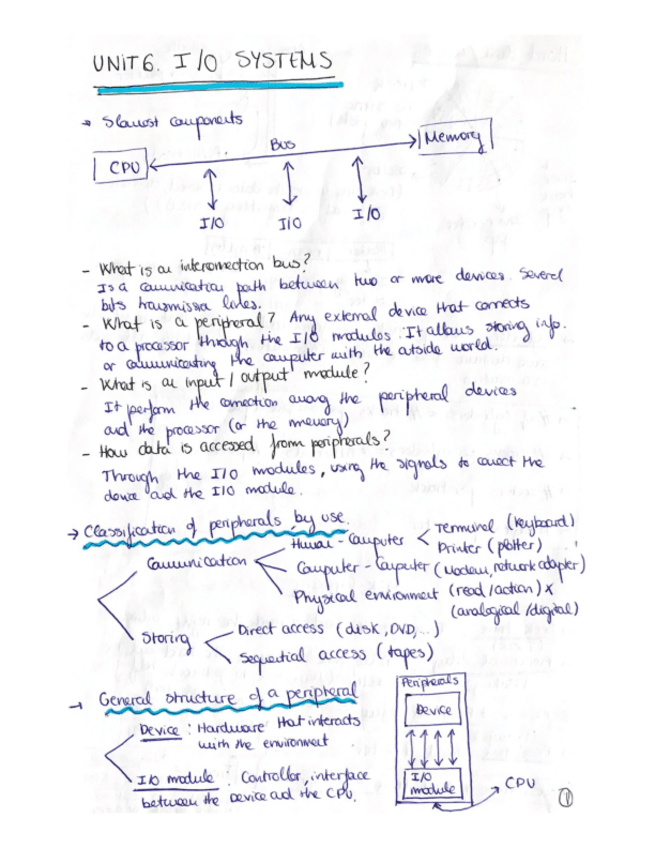 UNIT 6. I/O SYSTEMS
→ Slowest components
Bus
CPU
Memory
I/O I/O I/O
- What is an interconnection bus?
Is a communication path between two or more devices. Several
bits transmission lines.
- What is a peripheral? Any external device that connects
to a processor through the I/O modules. It allows storing info.
or communicating the computer with the outside world.
- What is an input / output module?
It perform the connection among the peripheral devices
and the processor (or the memory)
- How data is accessed from peripherals?
Through the I/O modules, using the signals to conect the
device and the I/O module.
→ Classification of peripherals by use.
Communication
Human - Computer
Terminal (Keyboard)
Printer (plotter)
Computer - Computer (Modem, network adapter)
Physical environment (read/action) x
(analogical/digital)
Storing
Direct access (disk, DVD, ...)
Sequential access (tapes)
→ General structure of a peripheral
Device: Hardware that interacts
with the environment
I/O module: Controller, interface
between the Device and the CPU.
Peripherals
Device
I/O
module
CPU
1